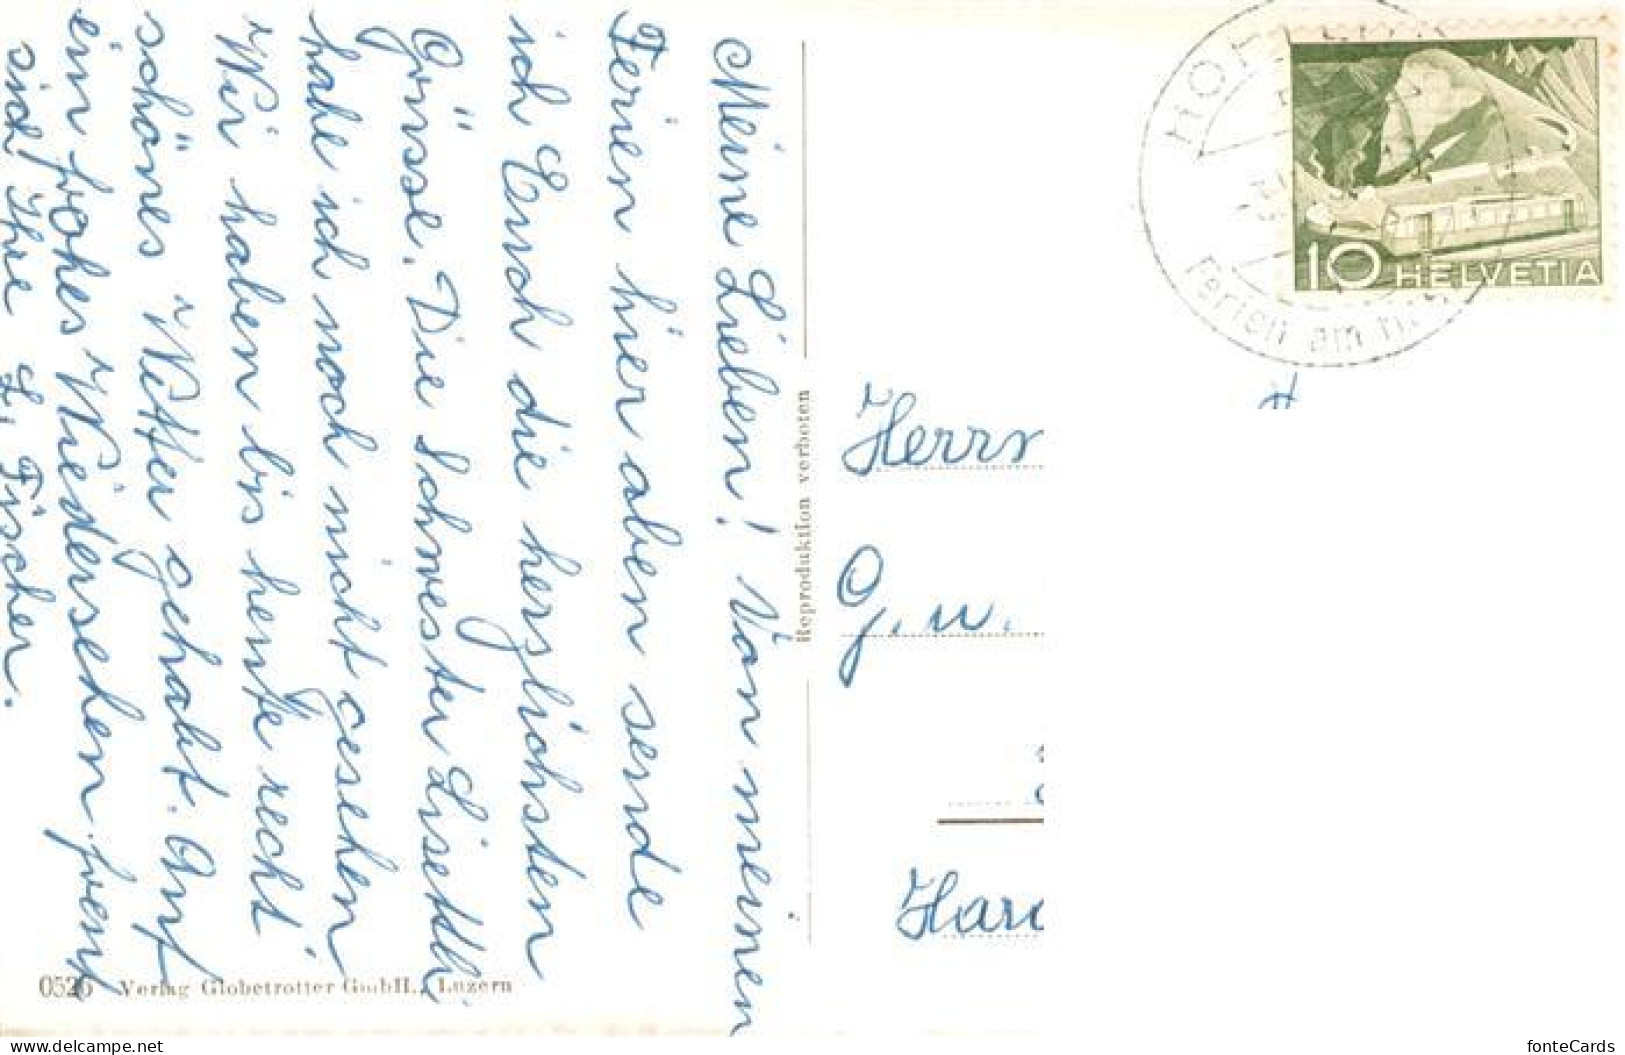 Meine Lieben! Von meinen
Ferien hier oben sende
ich Euch die herzlichsten
Grüsse. Die Schwester Lisettli
habe ich noch nicht gesehen
Wir haben bis heute recht
schönes Wetter gehabt. Auf
ein frohes Wiedersehen freut
sich Ihre L. Fischer.
Reproduktion verboten
0526 Verlag Globetrotter GmbH., Luzern
10 HELVETIA
Ferien am
Herrn
G. u.
delcampe.net
fonteCards